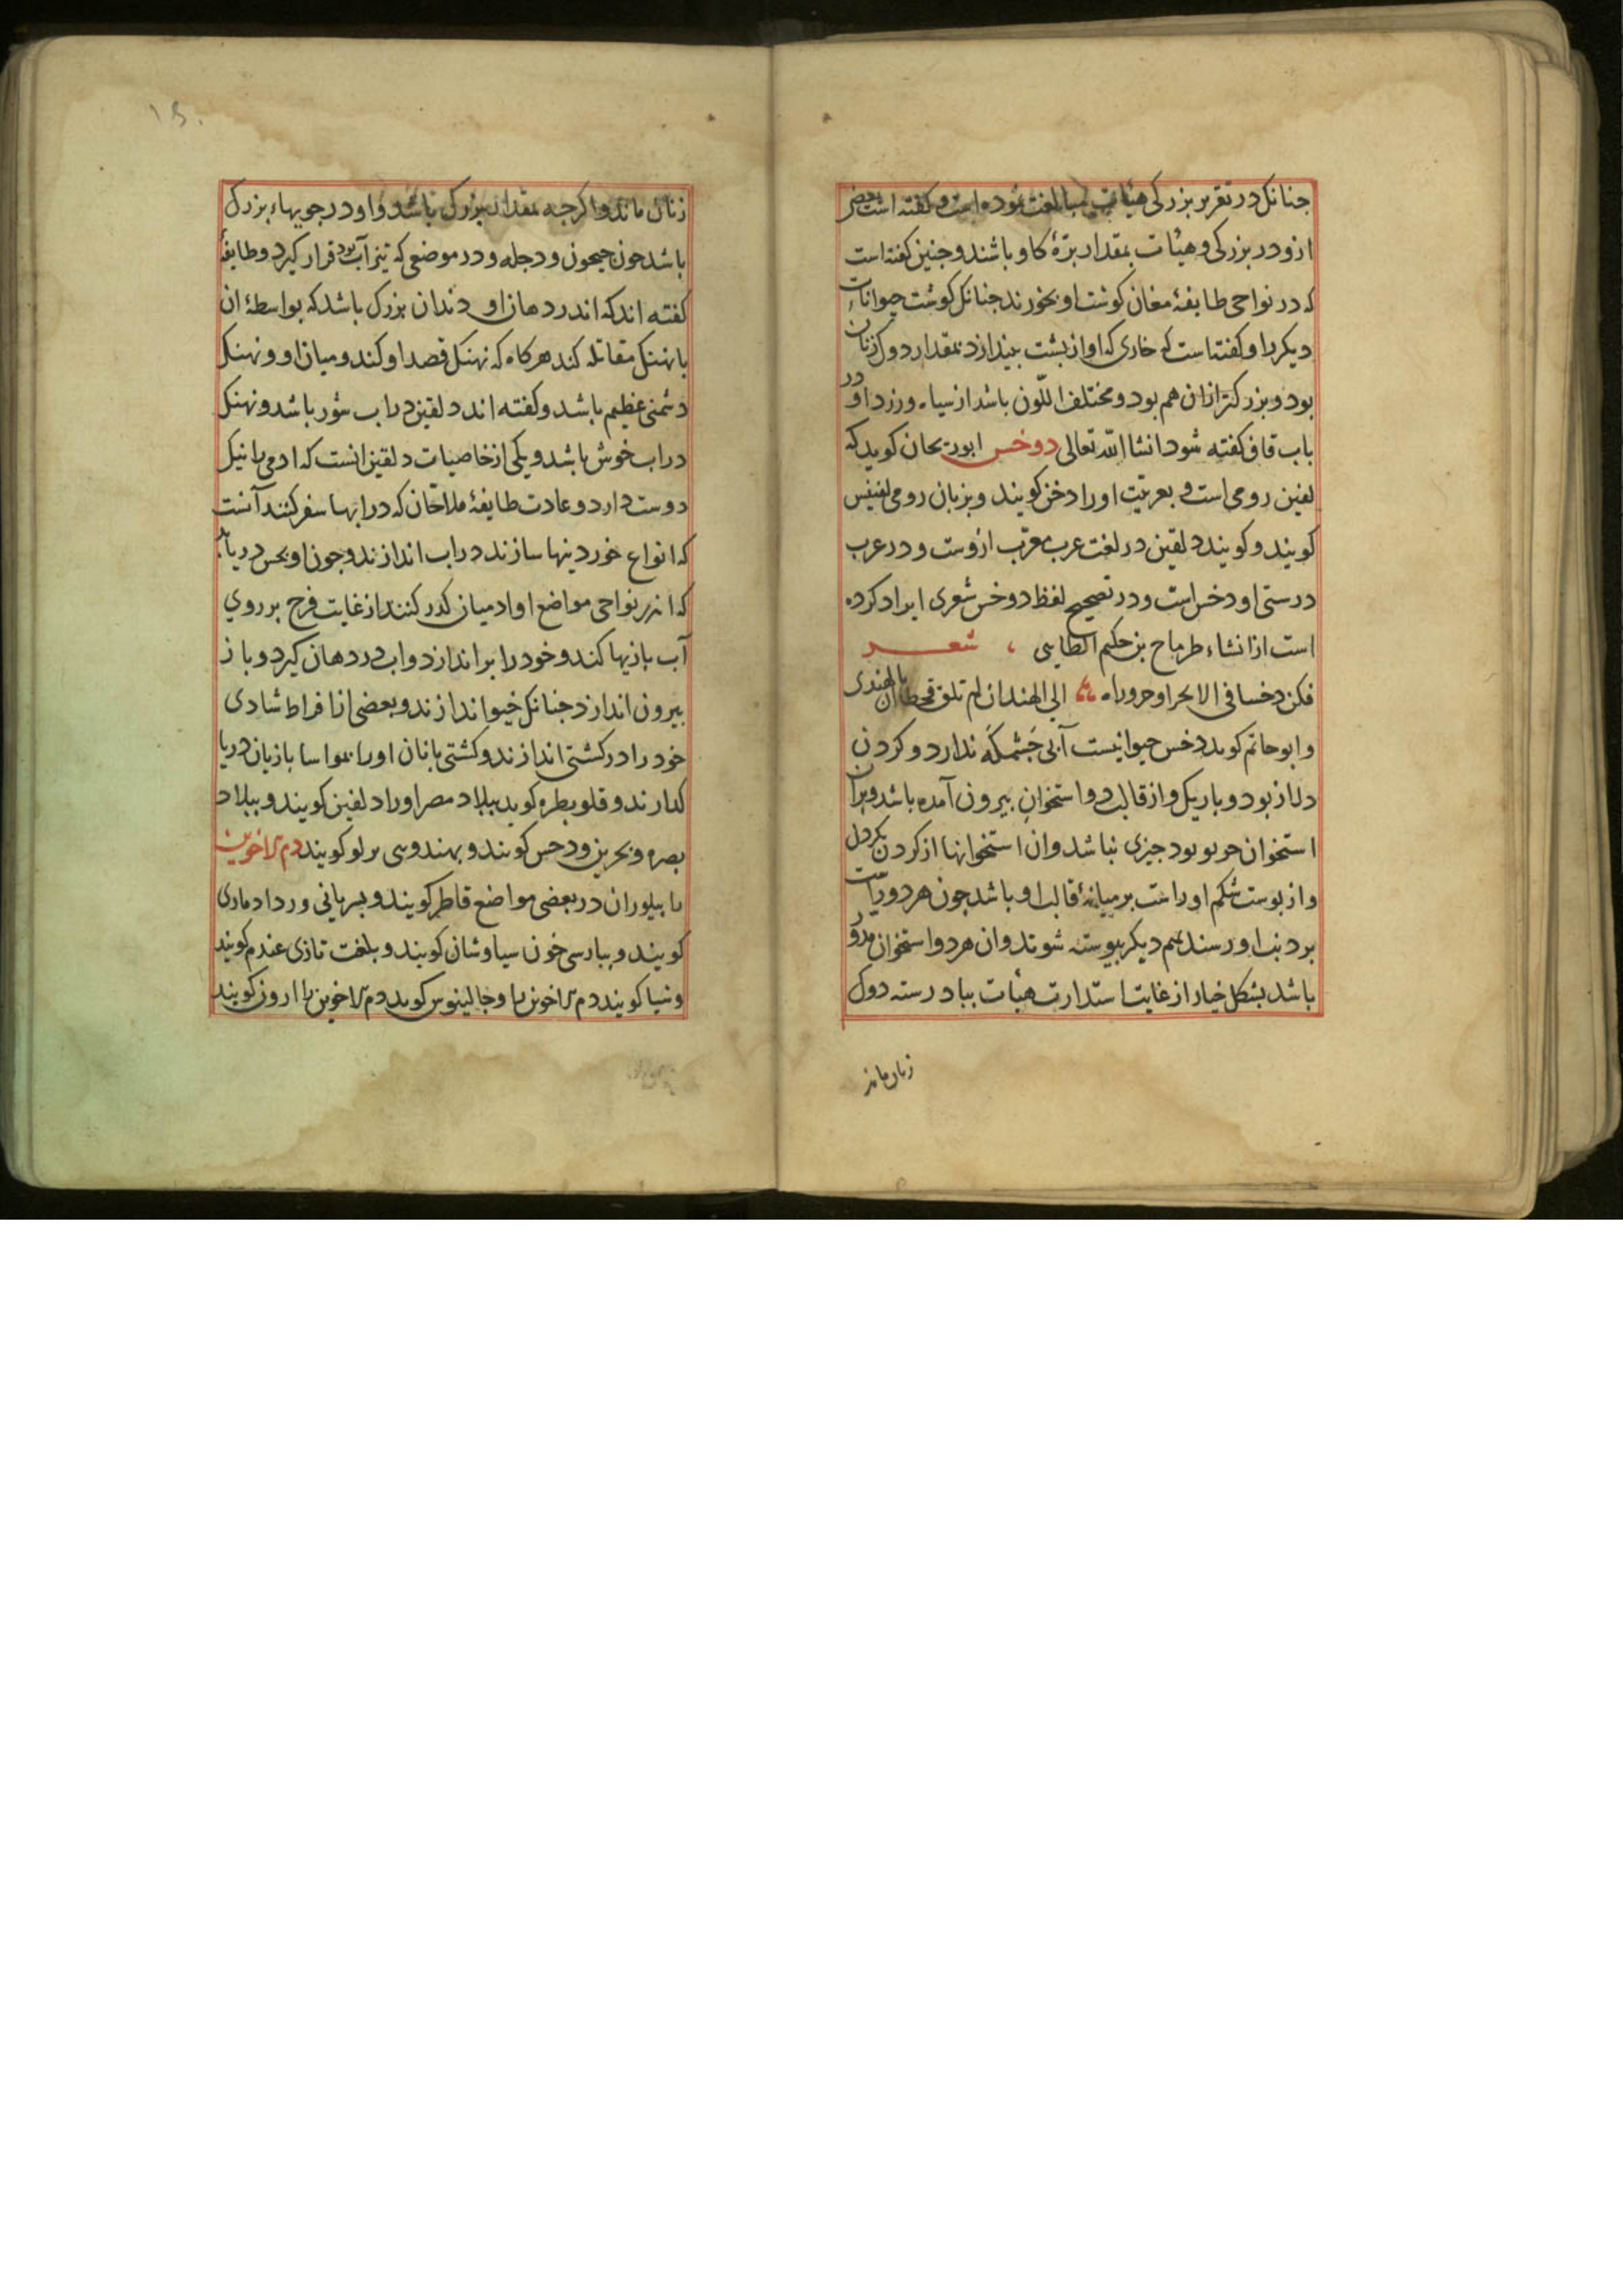 جنانک در تقریر بزرکی هیات مبالغت نموده است و کفته است بعضی
ازو در بزرکی و هیأت بمقدار برّهٔ کاو باشند و جنین کفته است
که در نواحی طایفهٔ مغان کوشت او بخورند جنانک کوشت حیوانات
دیکر را و کفته است که خاری که او از بشت بیندازد بمقدار دوک زنان
بود و بزرکتر ازان هم بود و مختلف اللّون باشد از سیاه و زرد و او در
باب قاف کفته شود انشا الله تعالی دوخس ابوریحان کوید که
لغین رومی است و بعربیّت اورا دخن کویند و بزبان رومی لفنیس
کویند و کویند دلفین در لغت عرب معرّب ازوست و در عرب
درستی او دخس است و در تصحیح لفظ دوخس شعری ایراد کرده
است از انشاء طرماح بن حکیم الطایی ، شعـــر
فکن دخسا فی الابحر او جز وراه الی الهند ان لم تلق قحطان بالهندی
و ابو حاتم کوید دخس حیوانیست آبی جشمکه ندارد و کردن
دراز بود و باریک و از قالب دو استخوان بیرون آمده باشد و بران
استخوان جیزی نباشد و ان استخوانها از کردن
و از بوست شکم او راست بر میانهٔ قالب او باشد جون هر دو راست
بر دنب او رسند بهم دیکر بیوسته شوند و ان هر دو استخوان مدوّر
باشد بشکل خیار از غایت استدارت هیأت ببادرسته دوک
زنان ماند
۱۵۰
زنان ماند و اکرجه بمقدار بزرک باشد و او در جویهاء بزرک
باشد جون جیحون و دجله و در موضعی که تیز آب بود قرار کیرد و طایفهٔ
کفته اند که اندر دهان او دندان بزرک باشد که بواسطهٔ ان
با نهنک مقاتله کند هرکاه که نهنک قصد او کند و میان او و نهنک
دشمنی عظیم باشد و کفته اند دلفین در اب شور باشد و نهنک
در اب خوش باشد و یکی از خاصیات دلفین انست که ادمی را نیک
دوست دارد و عادت طایفهٔ ملاحان که در ابها سفر کنند آنست
که انواع خوردنیها سازند در اب اندازند و جون او بحس دریابد
که اندر نواحی مواضع او ادمیان کذر کنند از غایت فرح بر روی
آب بازیها کند و خود را بر اندازد و اب در دهان کیرد و باز
بیرون اندازد جنانک خیو اندازند و بعضی از افراط شادی
خود را در کشتی اندازند و کشتی بانان اورا بمواسا باز بان دریا
کذارند و قلوبطره کوید ببلاد مصر اورا دلفین کویند و ببلاد
بصره و بحرین دخس کویند و بهندوسی برلو کویند دم الاخوین
با بیلوران در بعضی مواضع قاطر کویند و بسریانی وردا دماری
کویند و ببارسی خون سیاوشان کویند و بلغت تازی عندم کویند
و شیا کویند دم الاخوین را و جالینوس کوید دم الاخوین را اروز کویند